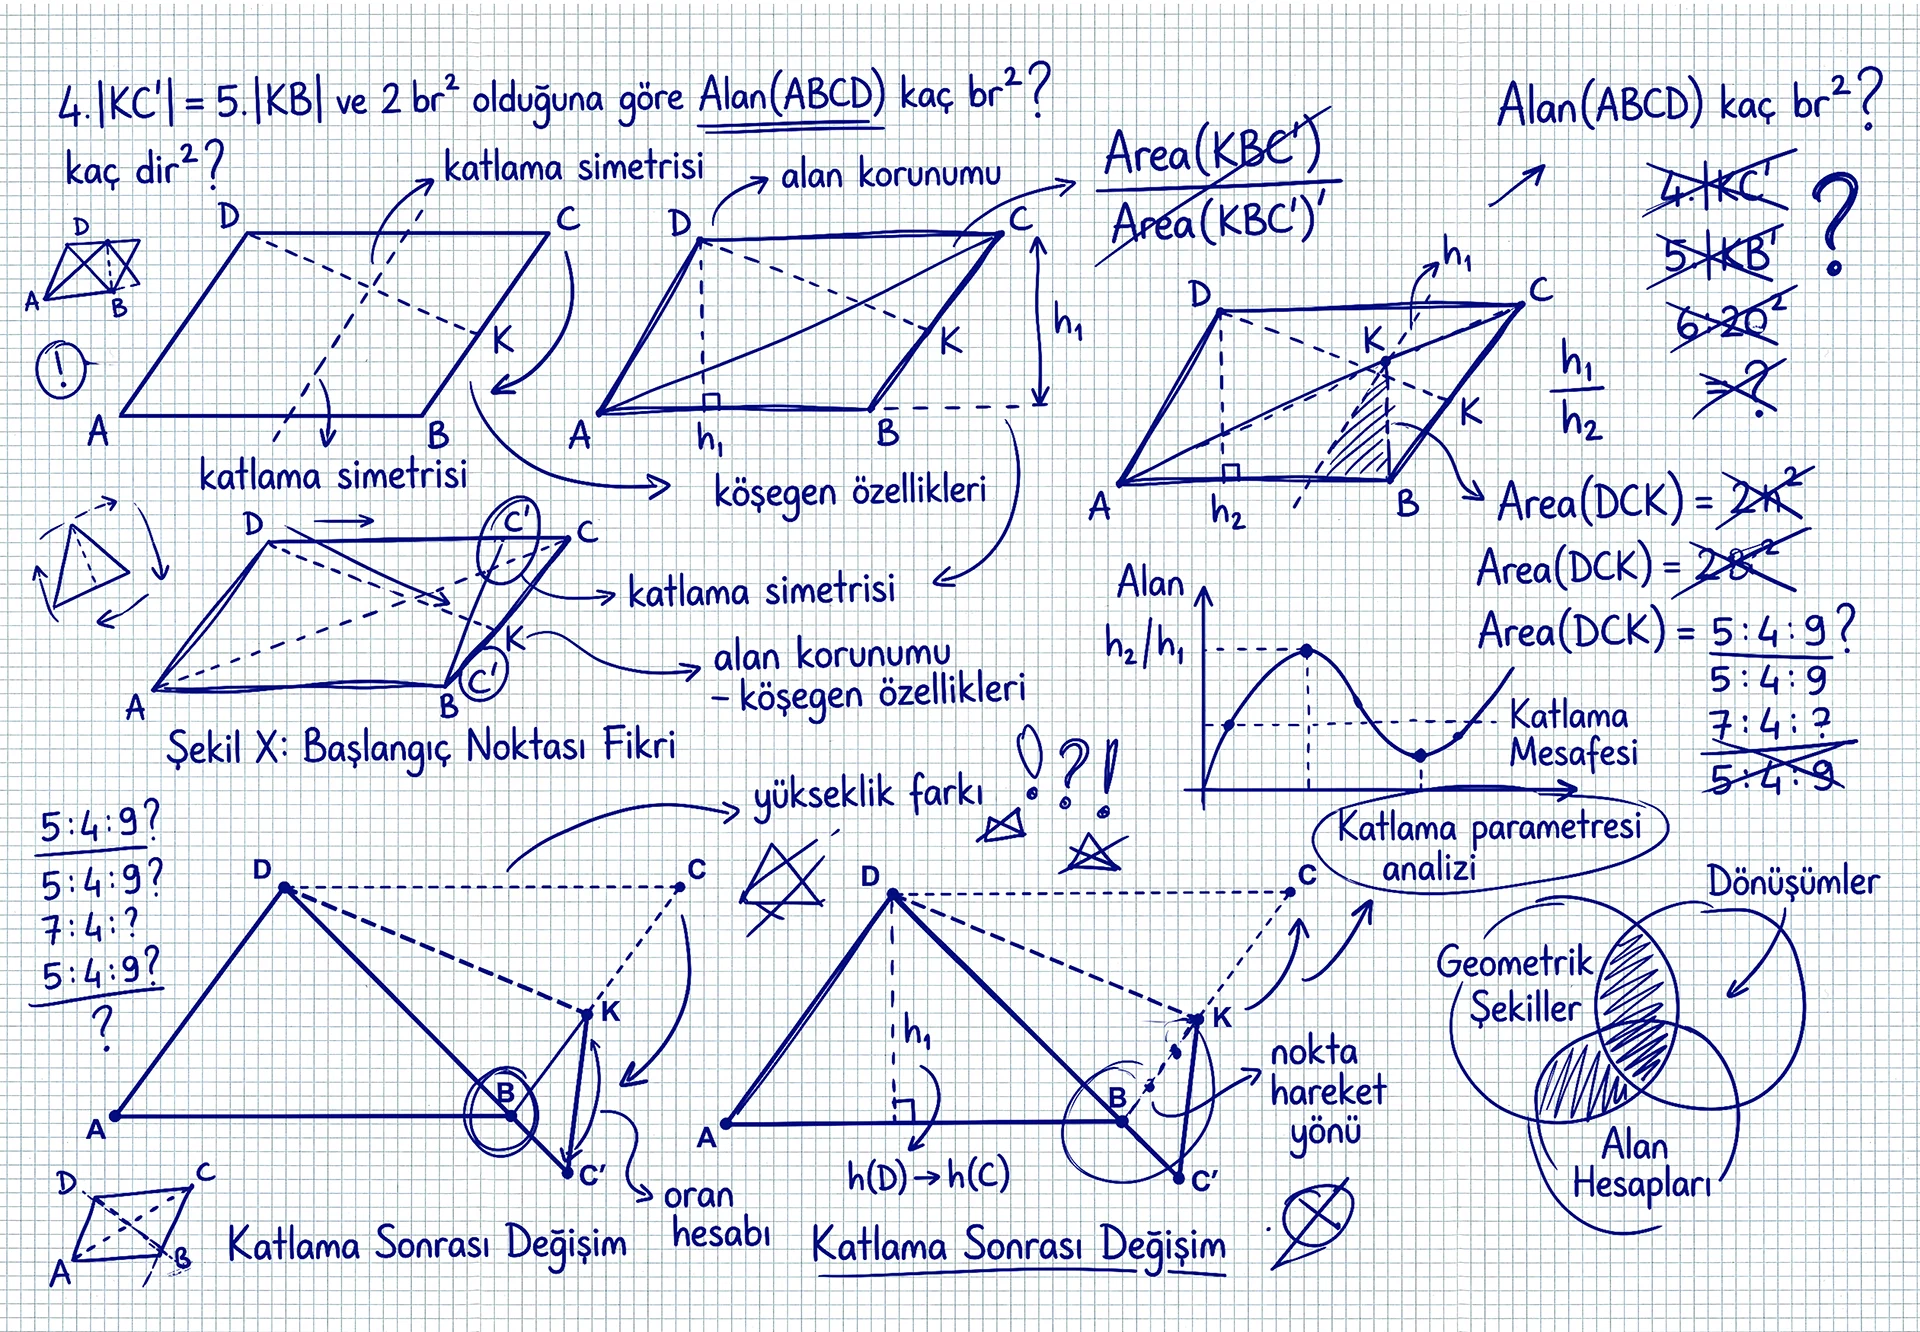 4.|KC'| = 5.|KB| ve 2 br² olduğuna göre Alan(ABCD) kaç br²?
kaç dir²?
katlama simetrisi
alan korunumu
Area(KBC')
Area(KBC')'
Alan(ABCD) kaç br²?
4.|KC'
5.|KB'
6.20²
= ?
?
D
A
B
!
D
C
K
A
B
katlama simetrisi
D
C
K
h₁
A
h₁
B
köşegen özellikleri
h₁
D
C
K
K
A
h₂
B
h₁
h₂
Area(DCK) =
Area(DCK) =
Area(DCK) = 5:4:9?
5:4:9
7:4:?
5:4:9
D
C'
C
K
C'
A
B
katlama simetrisi
alan korunumu
- köşegen özellikleri
Şekil X: Başlangıç Noktası Fikri
Alan
h₂/h₁
Katlama
Mesafesi
Katlama parametresi
analizi
yükseklik farkı
!?!
5:4:9?
5:4:9?
7:4:?
5:4:9?
?
D
C
K
B
A
C'
oran
hesabı
D
C
K
h₁
B
A
C'
h(D)→h(C)
nokta
hareket
yönü
Dönüşümler
Geometrik
Şekiller
Alan
Hesapları
D
C
A
B
Katlama Sonrası Değişim
Katlama Sonrası Değişim